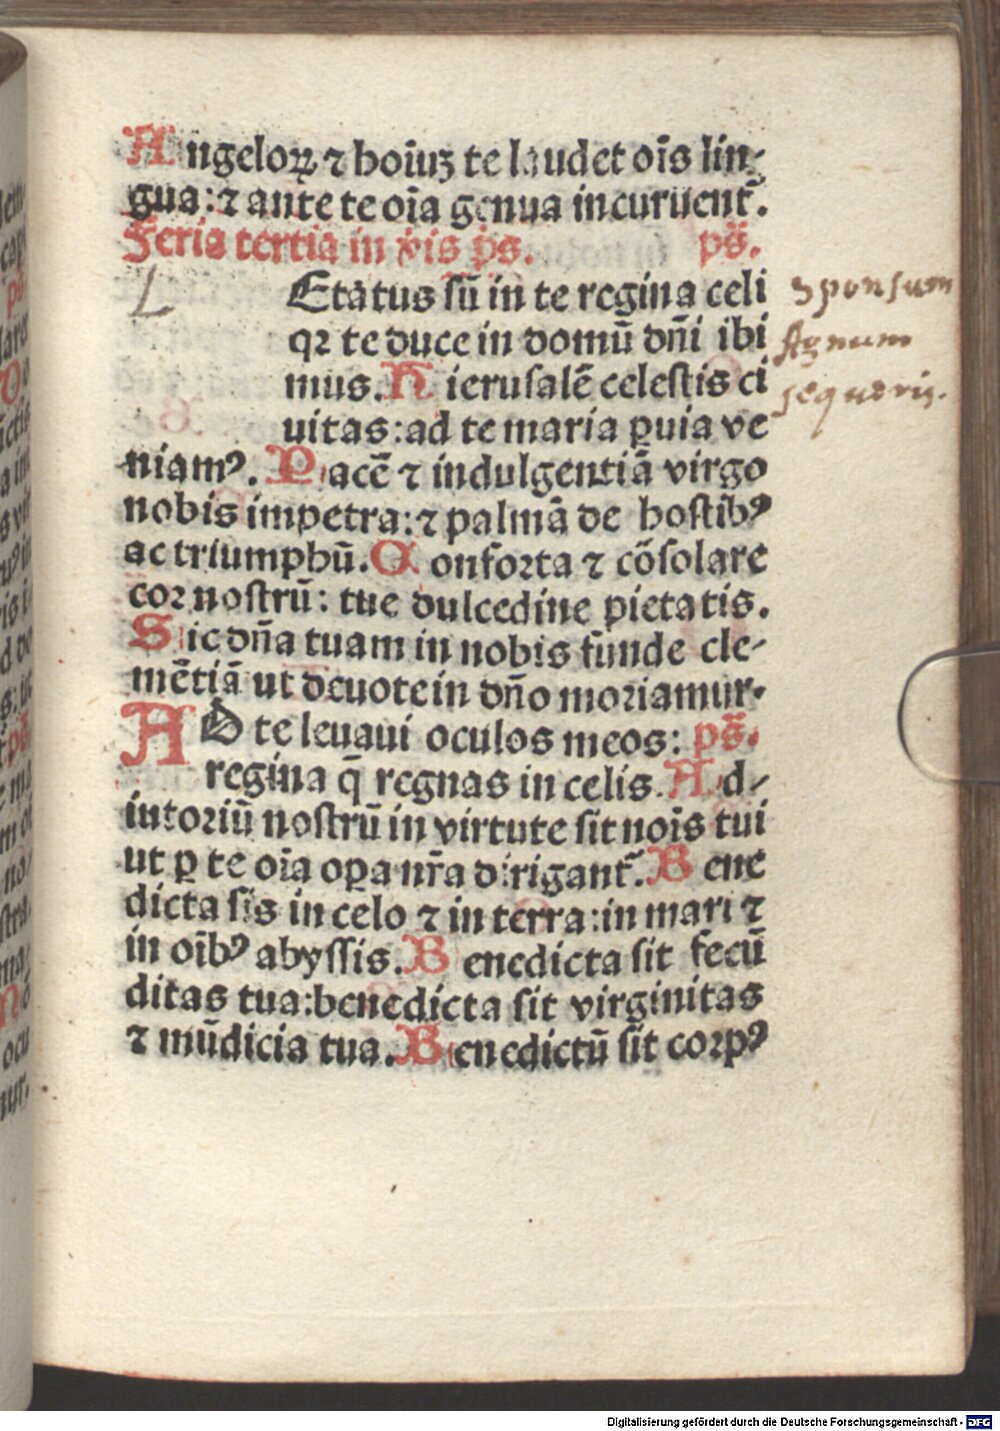 Angeloꝝ ⁊ hoīuꝫ te laudet oīs lin-
gua: ⁊ ante te oīa genua incuruent̄.
Feria tertia in v̄is p̄s. pš.
L Etatus sū in te regina celi
qꝛ te duce in domū dn̄i ibi
mus. Hierusalē celestis ci
uitas: ad te maria ꝑuia ve
niamꝰ. Pacē ⁊ indulgentiā virgo
nobis impetra: ⁊ palmā de hostibꝰ
ac triumphū. Conforta ⁊ cōsolare
cor nostrū: tue dulcedine pietatis.
Sic dn̄a tuam in nobis funde cle-
mētiā ut deuote in dn̄o moriamur.
AD te leuaui oculos meos: pš.
regina q̄ regnas in celis. Ad-
iutoriū nostrū in virtute sit noīs tui
ut ꝑ te oīa oꝑa nr̄a dirigant̄. Bene
dicta sis in celo ⁊ in terra: in mari ⁊
in oībꝰ abyssis. Benedicta sit fecū
ditas tua: benedicta sit virginitas
⁊ mūdicia tua. Benedictū sit corpꝰ
sponsum
Agnum
sequeris.
Digitalisierung gefördert durch die Deutsche Forschungsgemeinschaft - DFG